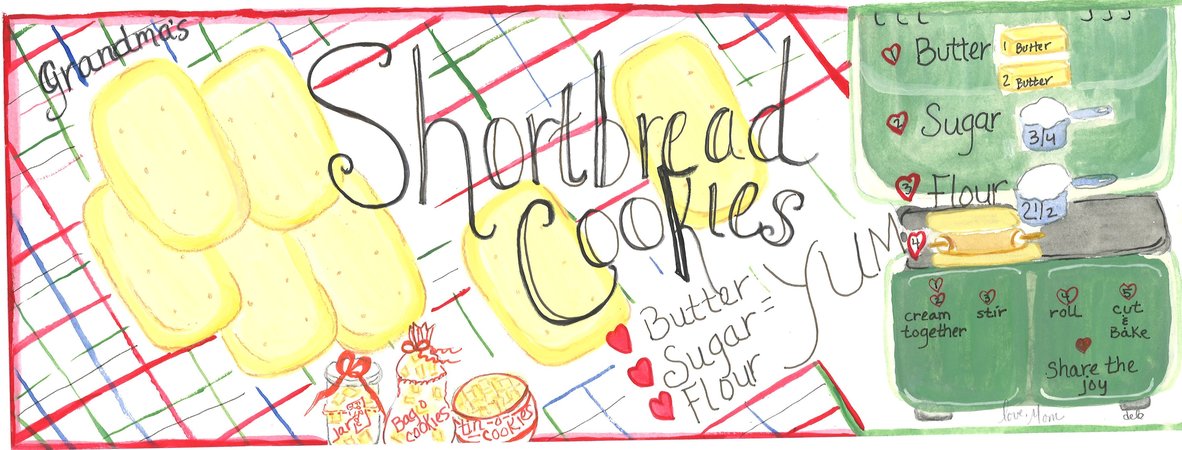 Grandma's
Shortbread
Cookies
Butter
Sugar = YUM
Flour
Jar
Bag o
cookies
tin-o-
cookies
1 Butter
1 Butter
2 Butter
2 Sugar
3/4
3 Flour
2 1/2
4
1
2
cream
together
3
stir
4
roll
5
cut
&
Bake
Share the
joy
love, Mom
deb